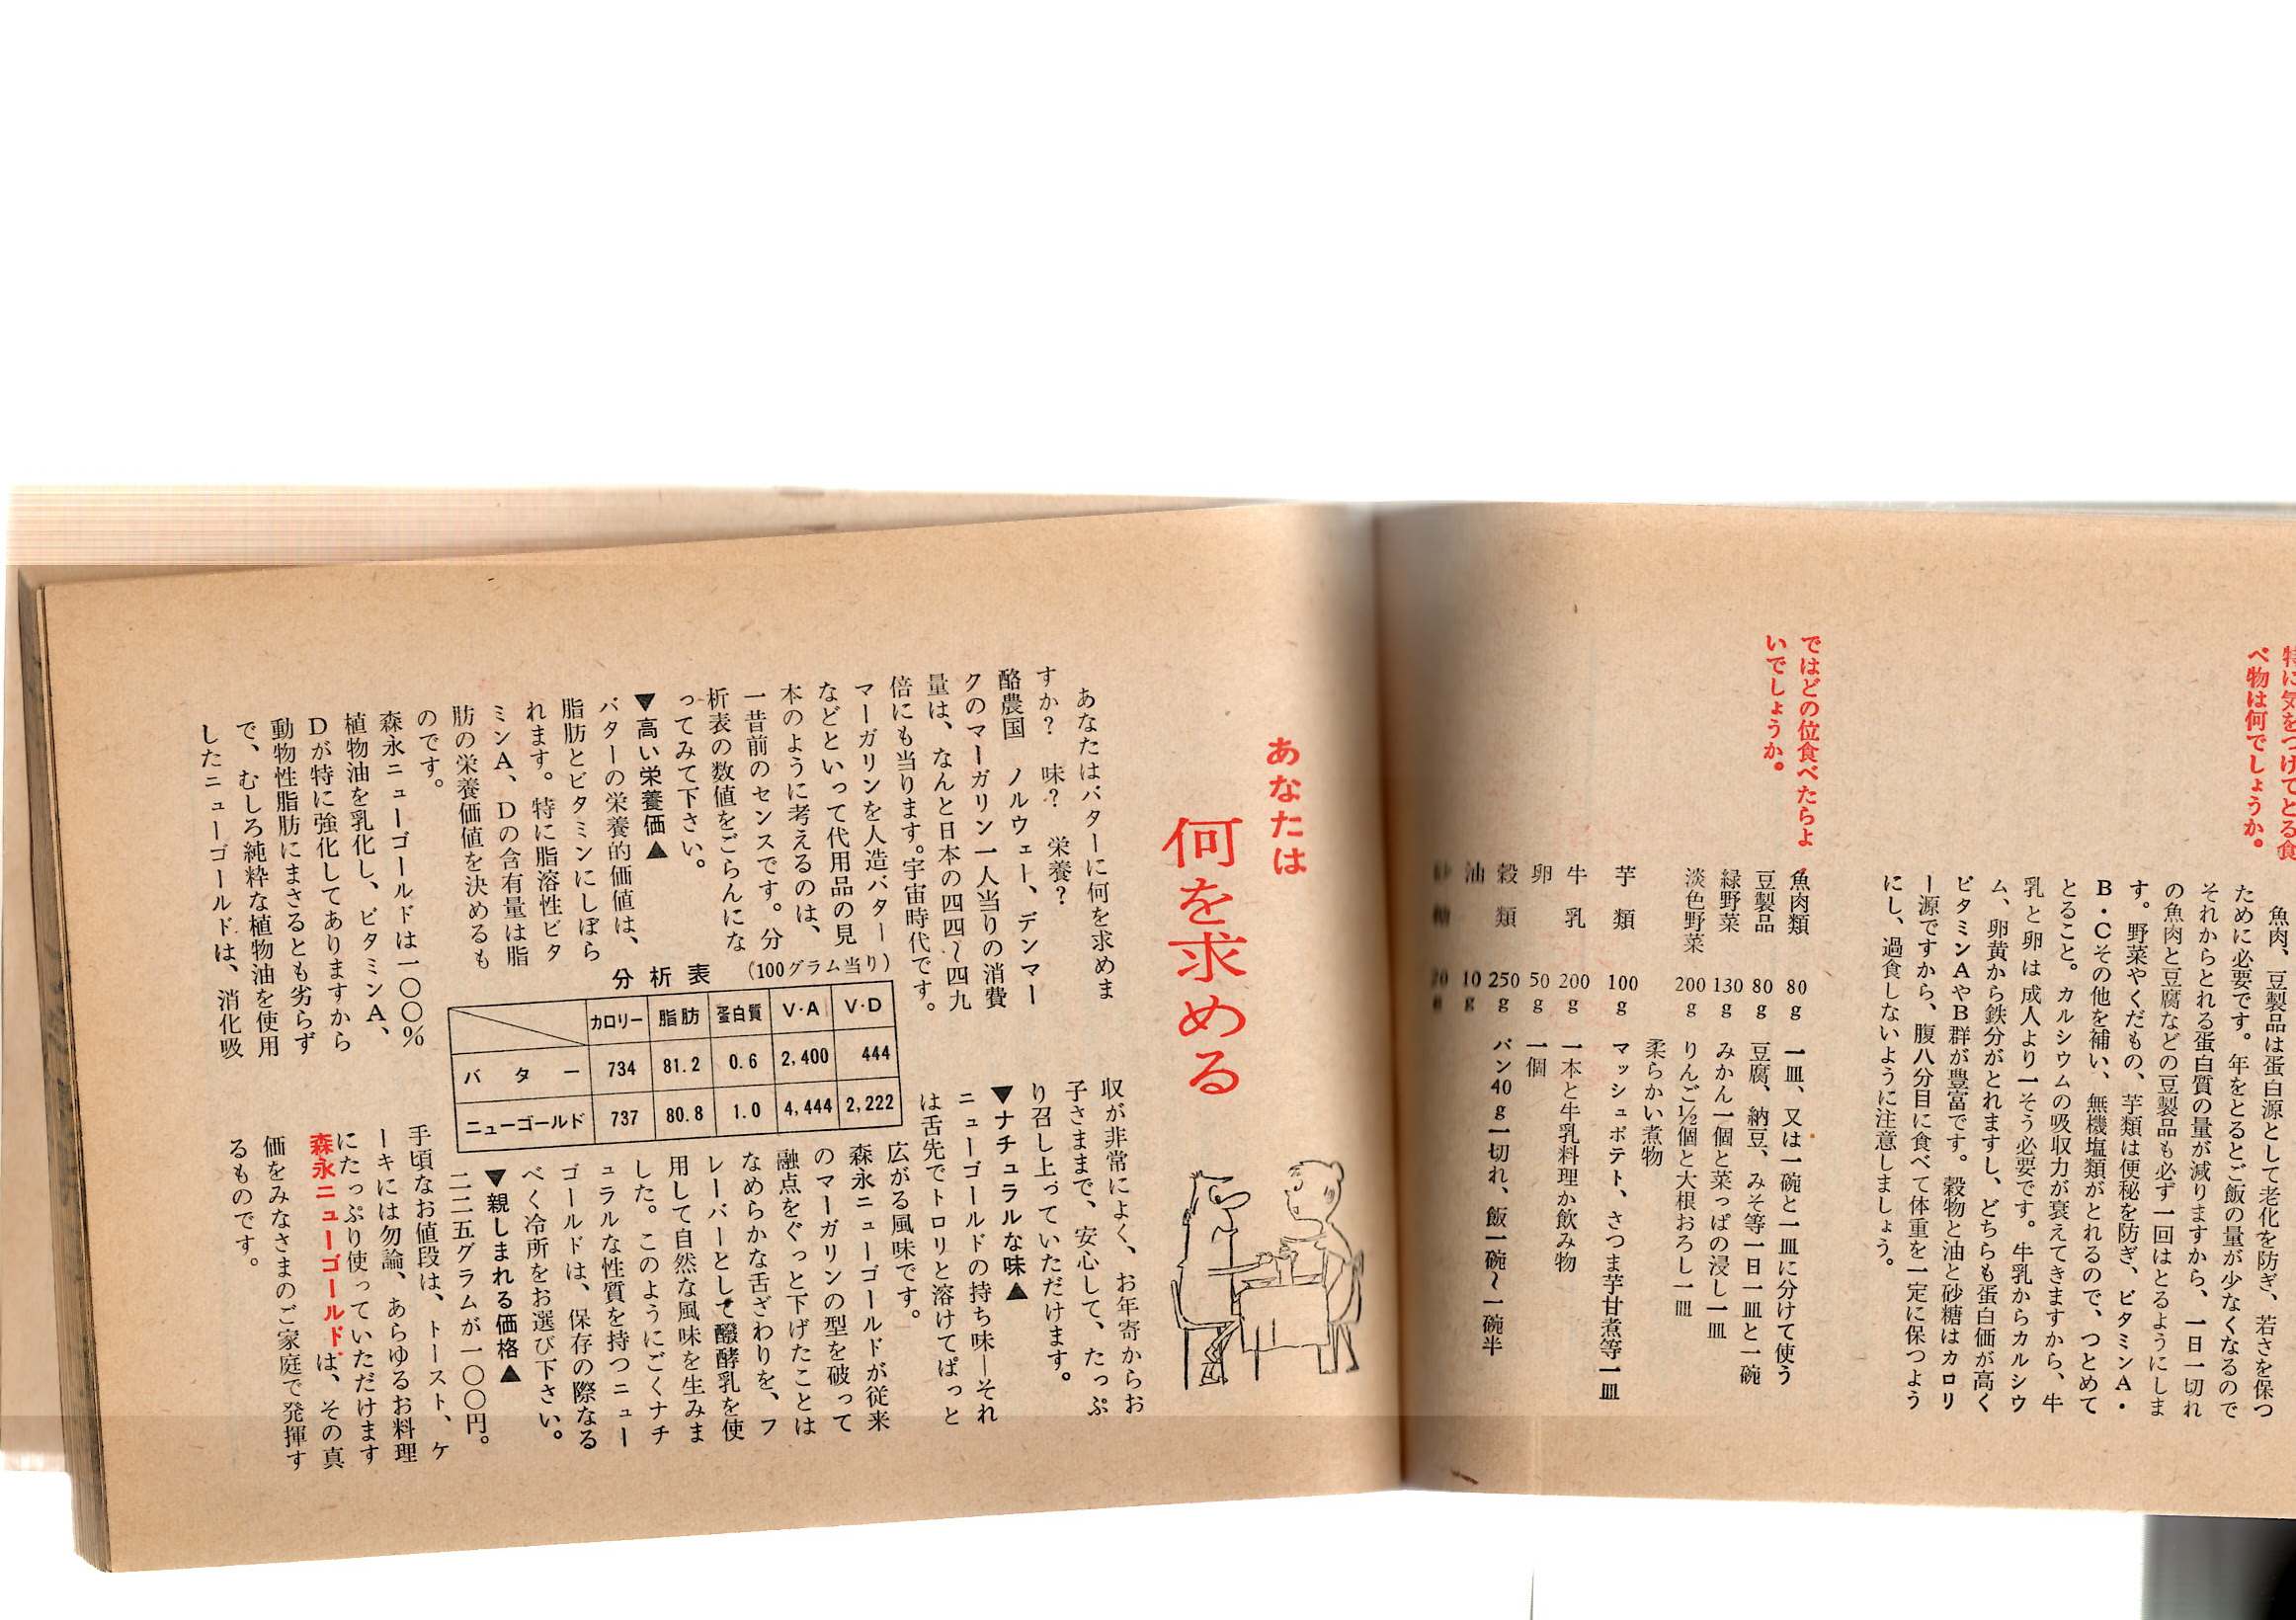 特に気をつけてとる食
べ物は何でしょうか。
魚肉、豆製品は蛋白源として老化を防ぎ、若さを保つ
ために必要です。年をとるとご飯の量が少なくなるので
それからとれる蛋白質の量が減りますから、一日一切れ
の魚肉と豆腐などの豆製品も必ず一回はとるようにしま
す。野菜やくだもの、芋類は便秘を防ぎ、ビタミンA・
B・Cその他を補い、無機塩類がとれるので、つとめて
とること。カルシウムの吸収力が衰えてきますから、牛
乳と卵は成人より一そう必要です。牛乳からカルシウ
ム、卵黄から鉄分がとれますし、どちらも蛋白価が高く
ビタミンAやB群が豊富です。穀物と油と砂糖はカロリ
ー源ですから、腹八分目に食べて体重を一定に保つよう
にし、過食しないように注意しましょう。
ではどの位食べたらよ
いでしょうか。
魚肉類 80g 一皿、又は一碗と一皿に分けて使う
豆製品 80g 豆腐、納豆、みそ等一日一皿と一碗
緑野菜 130g みかん一個と菜っぱの浸し一皿
淡色野菜 200g りんご½個と大根おろし一皿
柔らかい煮物
芋類 100g マッシュポテト、さつま芋甘煮等一皿
牛乳 200g 一本と牛乳料理か飲み物
卵 50g 一個
穀類 250g パン40g一切れ、飯一碗〜一碗半
油 10g
糖 20g
あなたは
何を求める
あなたはバターに何を求めま
すか? 味? 栄養?
酪農国 ノルウェート、デンマー
クのマーガリン一人当りの消費
量は、なんと日本の四四〜四九
倍にも当ります。宇宙時代です。
マーガリンを人造バター
などといって代用品の見
本のように考えるのは、
一昔前のセンスです。分
析表の数値をごらんにな
ってみて下さい。
▼高い栄養価▲
バターの栄養的価値は、
脂肪とビタミンにしぼら
れます。特に脂溶性ビタ
ミンA、Dの含有量は脂
肪の栄養価値を決めるも
のです。
森永ニューゴールドは一〇〇%
植物油を乳化し、ビタミンA、
Dが特に強化してありますから
動物性脂肪にまさるとも劣らず
で、むしろ純粋な植物油を使用
したニューゴールドは、消化吸
分析表 (100グラム当り)
カロリー 脂肪 蛋白質 V・A V・D
バター 734 81.2 0.6 2,400 444
ニューゴールド 737 80.8 1.0 4,444 2,222
収が非常によく、お年寄からお
子さままで、安心して、たっぷ
り召し上っていただけます。
▼ナチュラルな味▲
ニューゴールドの持ち味—それ
は舌先でトロリと溶けてぱっと
広がる風味です。
森永ニューゴールドが従来
のマーガリンの型を破って
融点をぐっと下げたことは
なめらかな舌ざわりを、フ
レーバーとして醱酵乳を使
用して自然な風味を生みま
した。このようにごくナチ
ュラルな性質を持つニュー
ゴールドは、保存の際なる
べく冷所をお選び下さい。
▼親しまれる価格▲
二二五グラムが一〇〇円。
手頃なお値段は、トースト、ケ
ーキには勿論、あらゆるお料理
にたっぷり使っていただけます
森永ニューゴールドは、その真
価をみなさまのご家庭で発揮す
るものです。